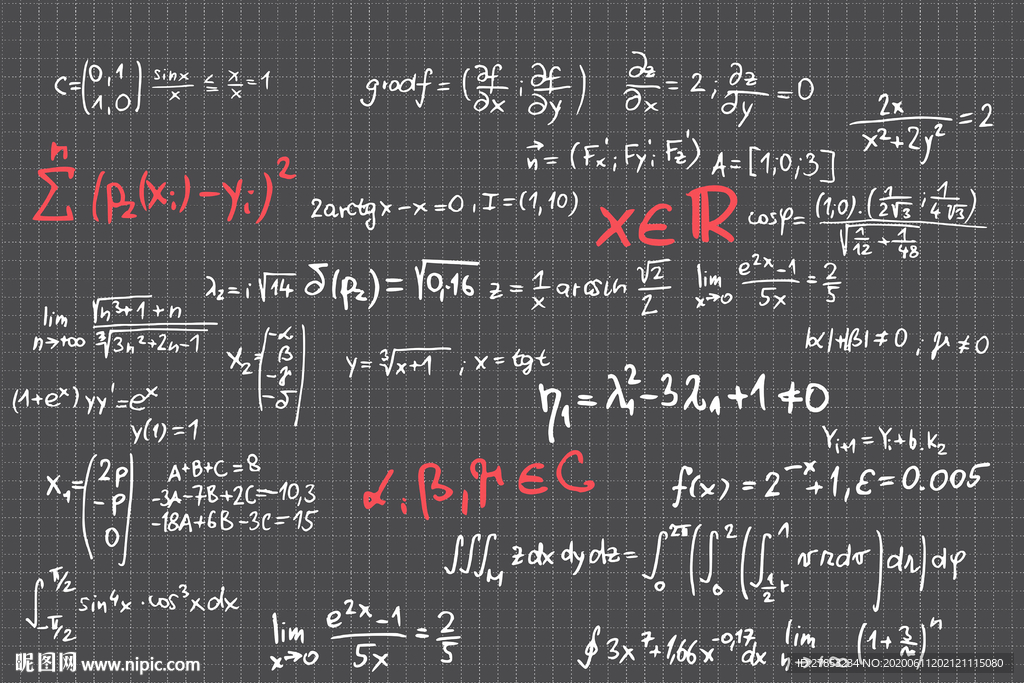 C=(0,1 1,0) sinx/x ≤ x/x =1
gradf = (∂f/∂x ; ∂f/∂y)
∂z/∂x = 2 ; ∂z/∂y = 0
2x/(x²+2y²) = 2
n⃗ = (Fx'; Fy'; Fz')
A=[1;0;3]
n Σ (p₂(xᵢ)-yᵢ)²
2arctgx-x=0, I=(1,10)
x∈ℝ
cosφ= (1,0).(1/(2√3) ; 1/(4√3)) / √(1/12 + 1/48)
λ₂=i√14
δ(p₂)=√0,16
z = 1/x arcsin √2/2
lim x→0 (e^(2x)-1)/5x = 2/5
lim n→+∞ √(n³+1)+n / ∛(3n²+2n-1)
X₂=(-α β -γ -δ)
y=∛(x+1) ; x=tgt
|α|+|β|≠0 ; γ≠0
(1+eˣ)yy'=eˣ
y(1)=1
η₁=λ₁²-3λ₁+1≠0
Yᵢ₊₁=Yᵢ+b.k₂
X₁=(2p -p 0)
A+B+C=8
-3A-7B+2C=-10,3
-18A+6B-3C=15
α,β,γ∈C
f(x)=2^(-x)+1, ε=0.005
∫∫∫_M zdxdydz= ∫₀^(2π) (∫₀² (∫_(½r)^1 vrdv)dr)dφ
∫_(-π/2)^(π/2) sin⁴x·cos³xdx
lim x→0 (e^(2x)-1)/5x = 2/5
∮3x⁷+1,66x^(-0,17)dx
lim (1+3/n)ⁿ
昵图网 www.nipic.com
NO:20200611202121115080